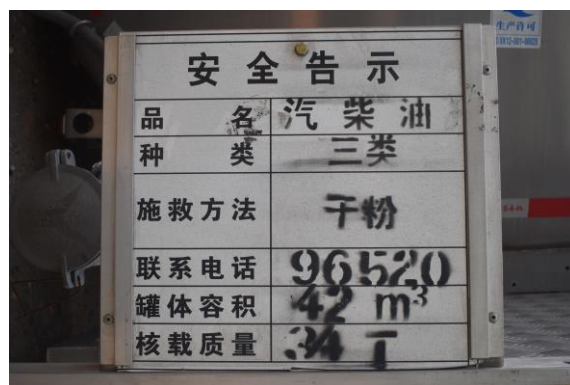 安全告示
品名 汽柴油
种类 三类
施救方法 干粉
联系电话 96520
罐体容积 42 m³
核载质量 34 T
生产许可